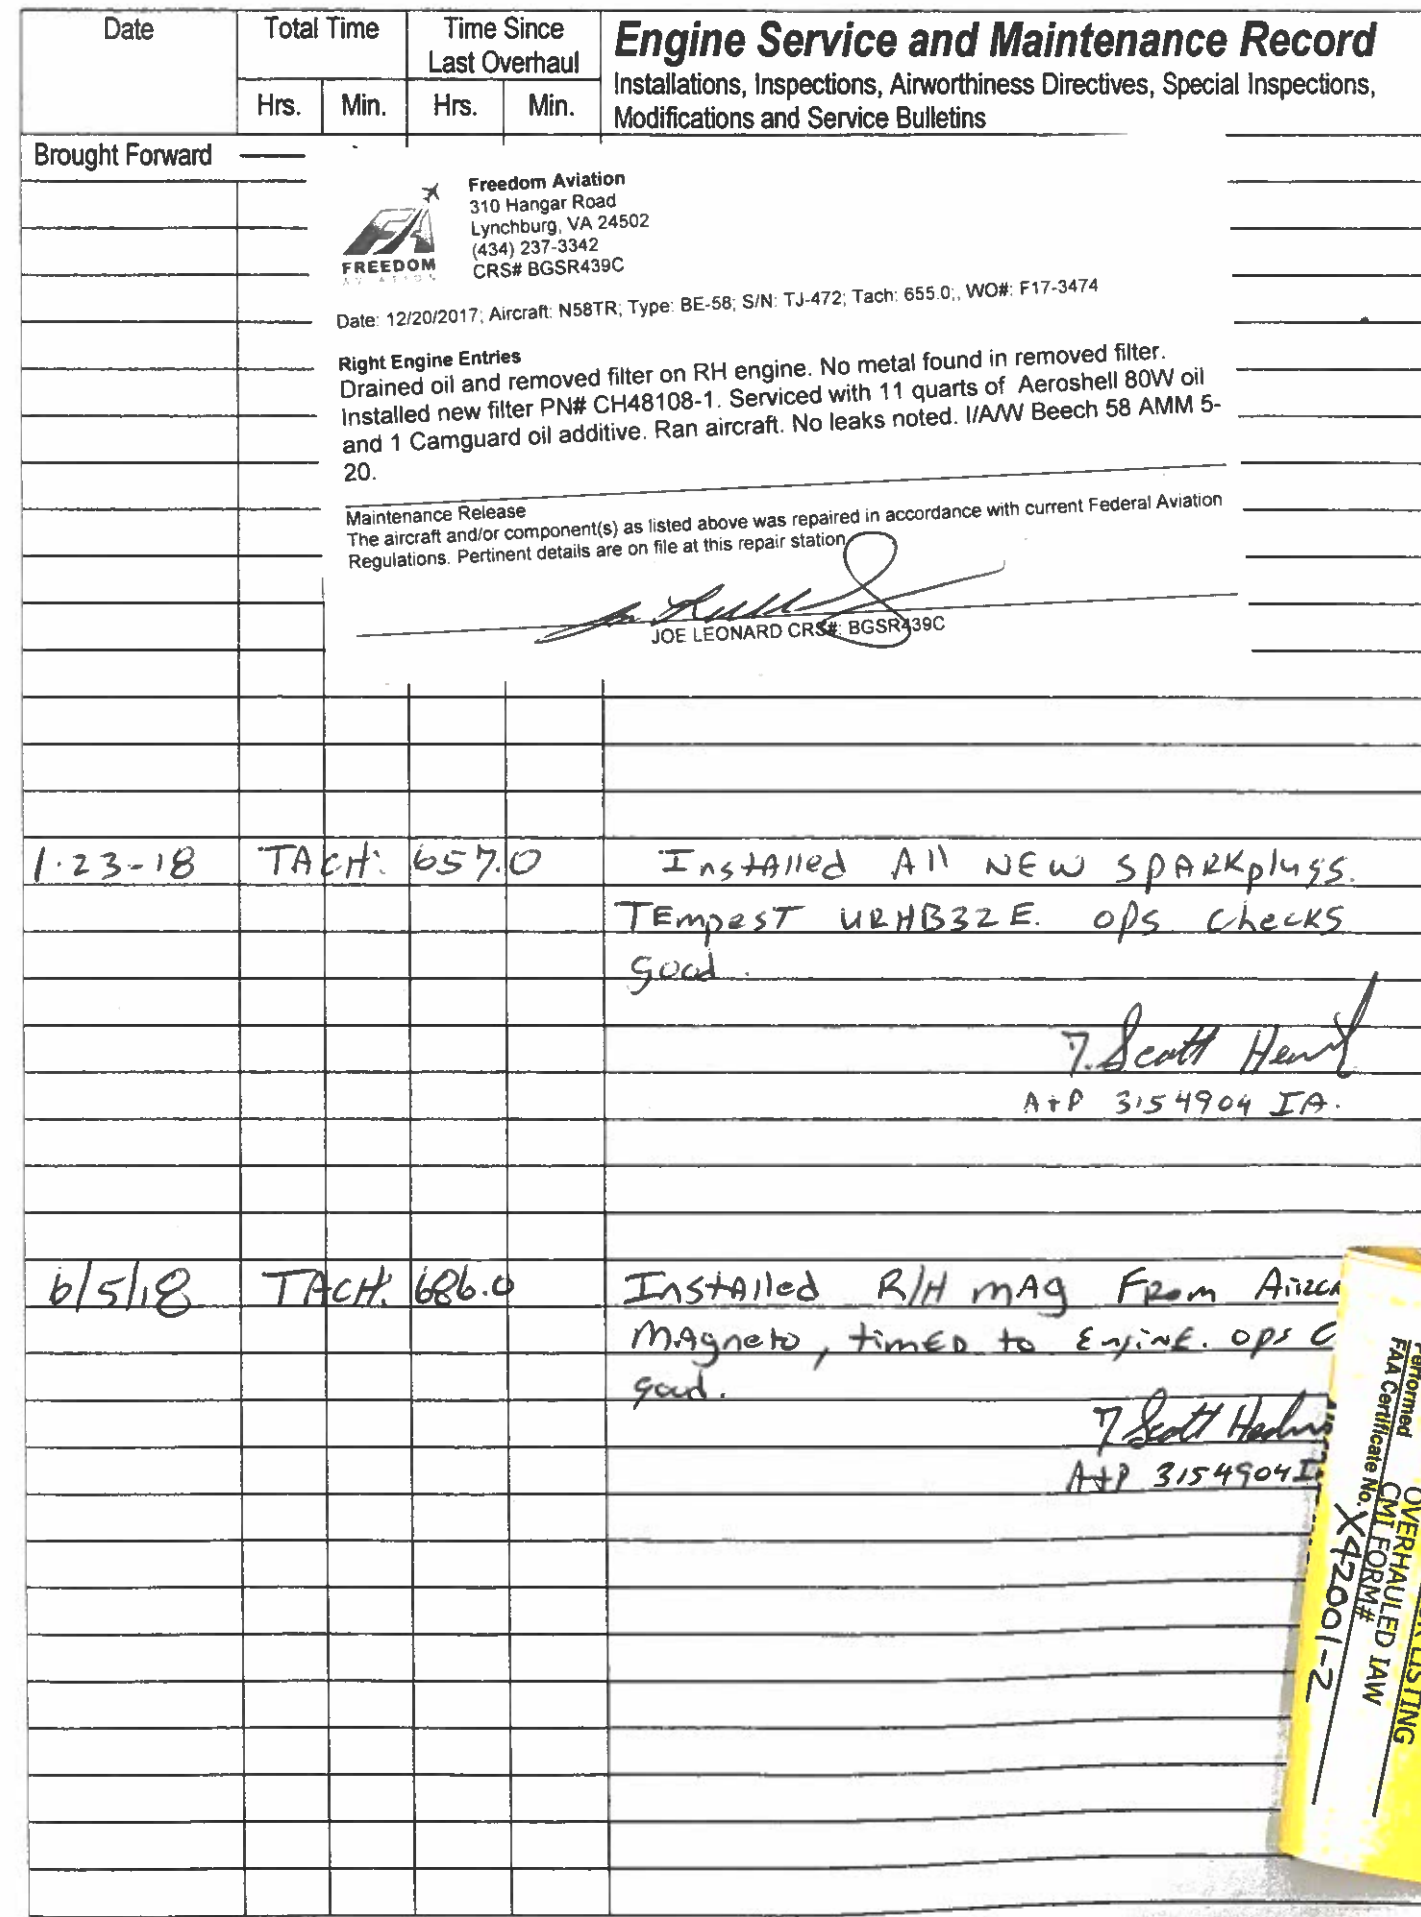 Date
Total Time
Time Since
Last Overhaul
Hrs.
Min.
Hrs.
Min.
Engine Service and Maintenance Record
Installations, Inspections, Airworthiness Directives, Special Inspections,
Modifications and Service Bulletins
Brought Forward
FREEDOM
AVIATION
Freedom Aviation
310 Hangar Road
Lynchburg, VA 24502
(434) 237-3342
CRS# BGSR439C
Date: 12/20/2017; Aircraft: N58TR; Type: BE-58; S/N: TJ-472; Tach: 655.0;, WO#: F17-3474
Right Engine Entries
Drained oil and removed filter on RH engine. No metal found in removed filter.
Installed new filter PN# CH48108-1. Serviced with 11 quarts of Aeroshell 80W oil
and 1 Camguard oil additive. Ran aircraft. No leaks noted. I/A/W Beech 58 AMM 5-
20.
Maintenance Release
The aircraft and/or component(s) as listed above was repaired in accordance with current Federal Aviation
Regulations. Pertinent details are on file at this repair station
JOE LEONARD CRS#: BGSR439C
1-23-18 TACH: 657.0 Installed All NEW SPARKplugs.
TEmpesT URHB32E. ops checks
good.
T. Scott
A+P 3154904 IA.
6/5/18 TACH: 686.0 InstAlled R/H mAg From
MAgneto, timED to EnginE. ops
good.
T Scott
A+P 3154904 I
Performed
FAA Certificate No. X42001-2
OVERHAULED IAW
CMI FORM#
LISTING